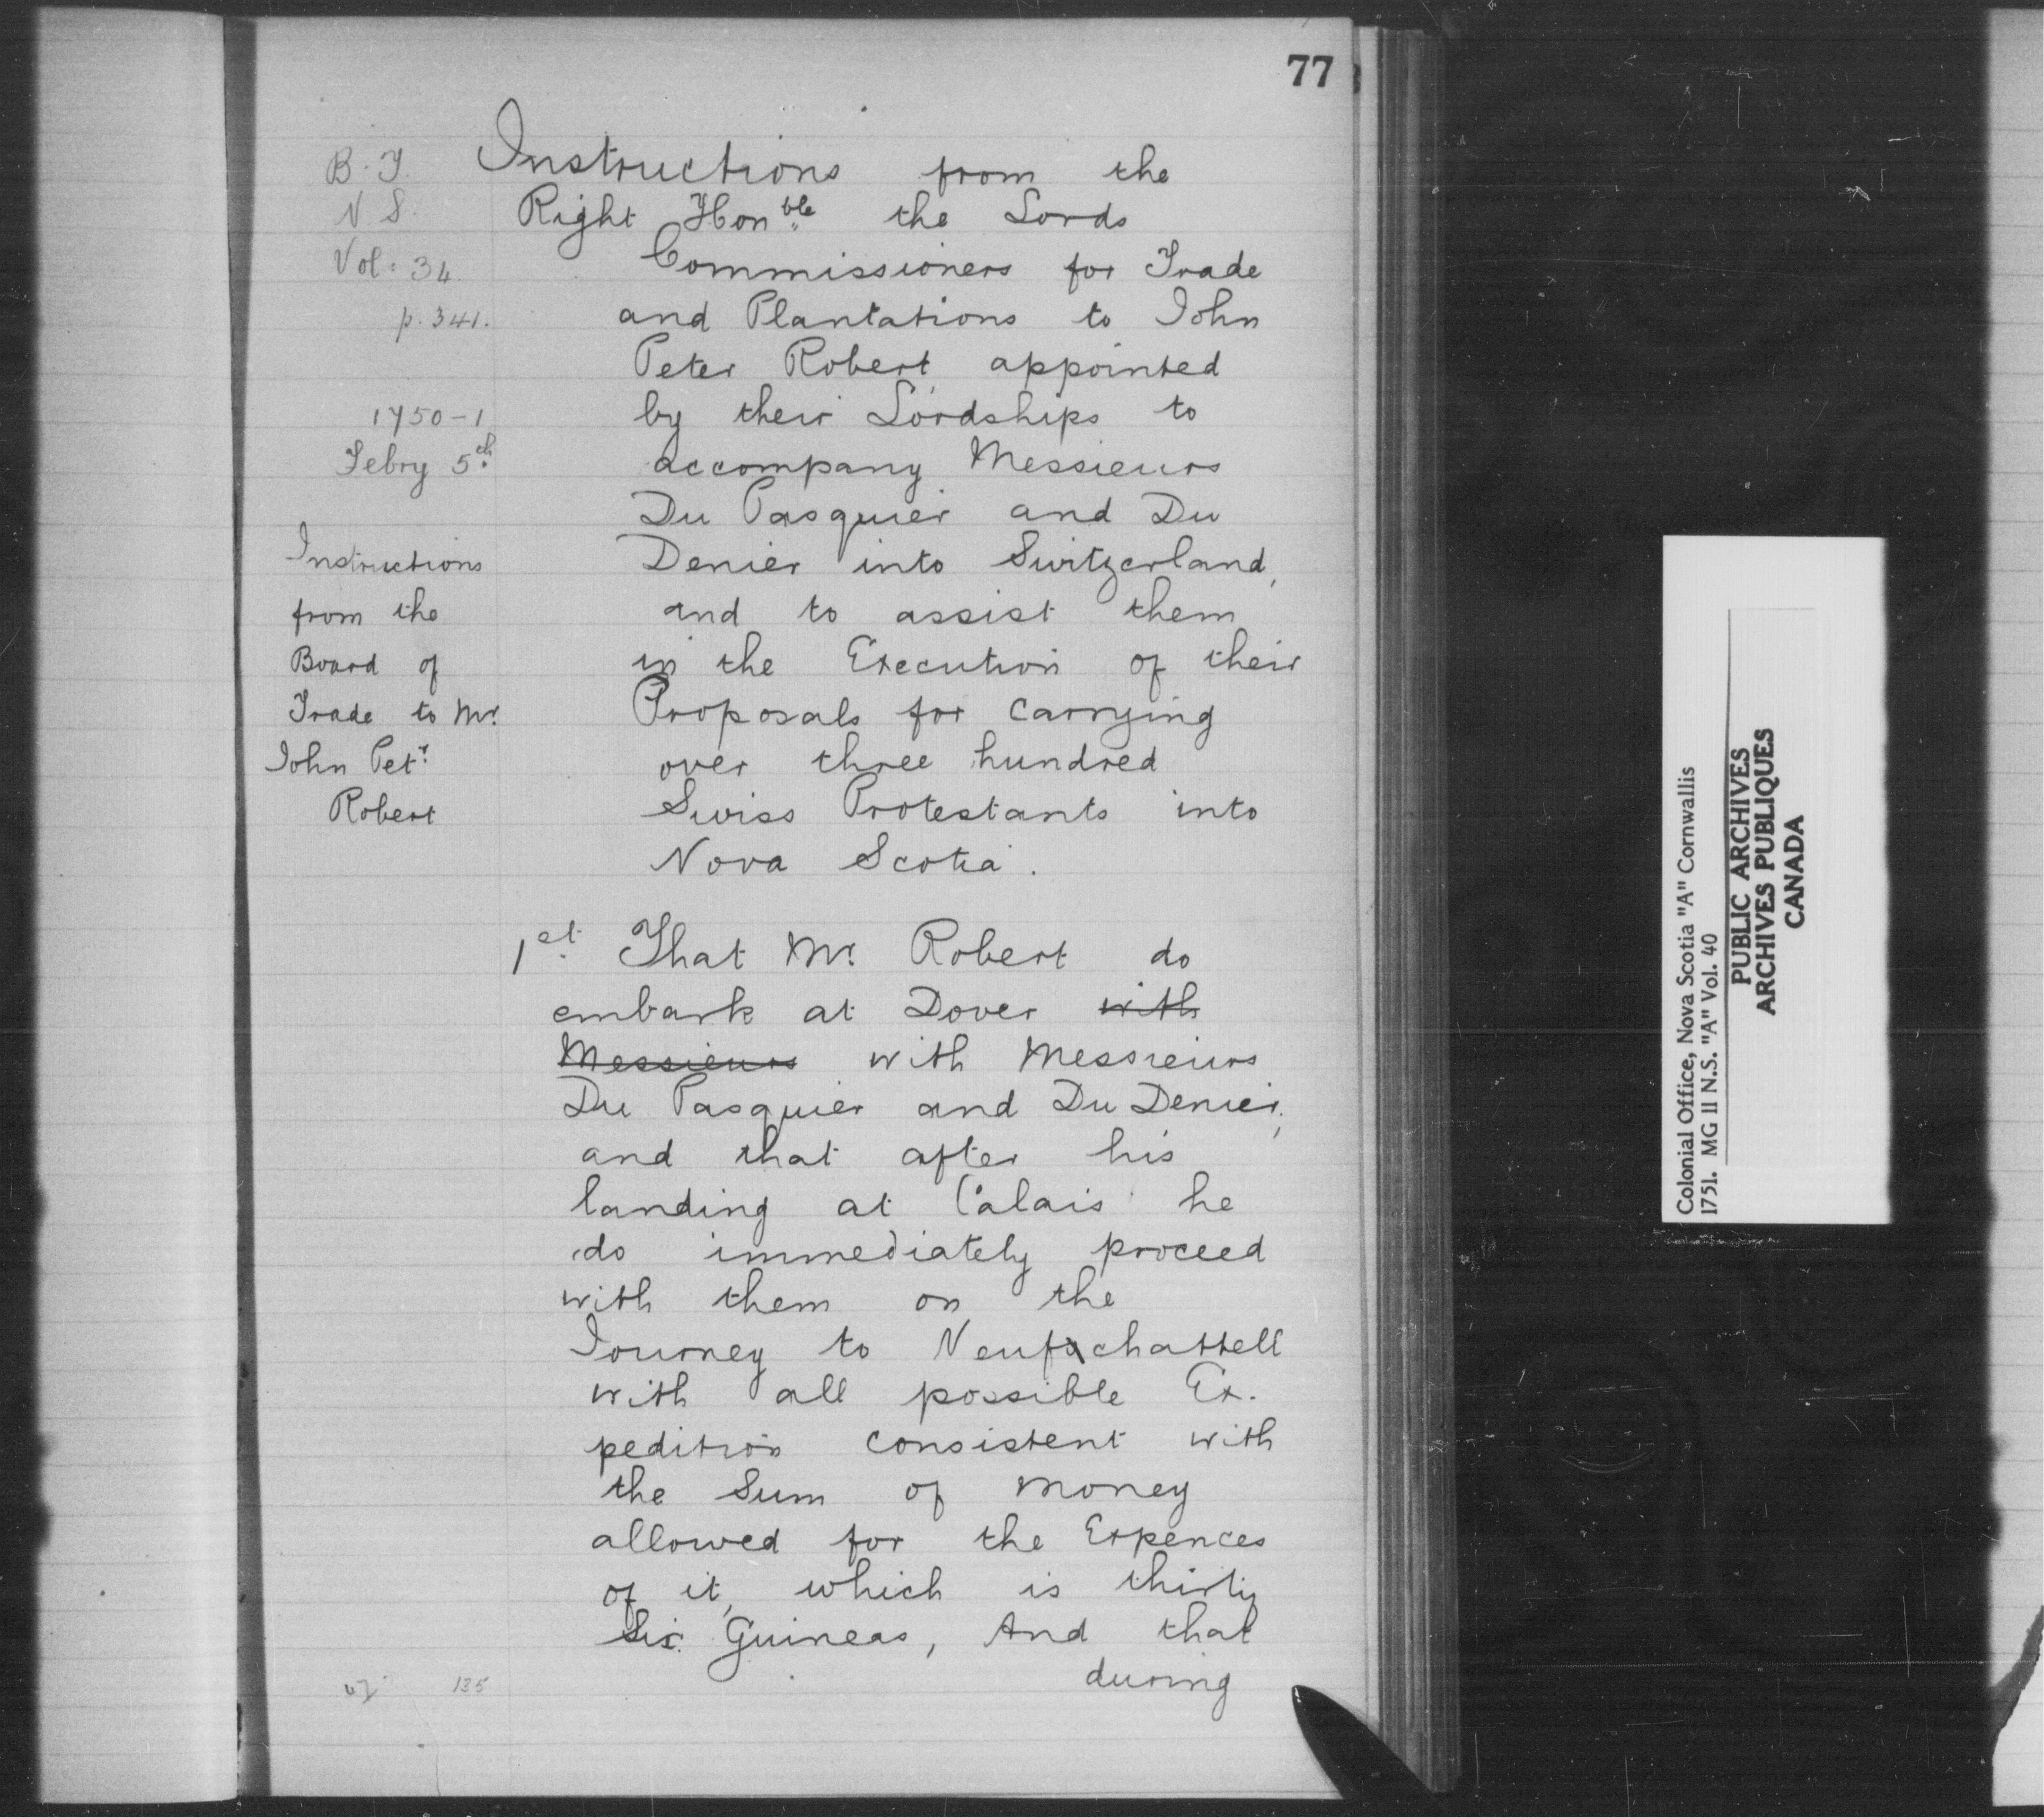 77
B. T.
N S.
Vol. 34.
p. 341.
1750-1
Febry 5th
Instructions
from the
Board of
Trade to Mr.
John Petr.
Robert
Instructions from the
Right Honble the Lords
Commissioners for Trade
and Plantations to John
Peter Robert, appointed
by their Lordships to
accompany Messieurs
Du Pasquier and Du
Denier into Switzerland,
and to assist them
in the Execution of their
Proposals for carrying
over three hundred
Swiss Protestants into
Nova Scotia.
1st. That Mr. Robert do
embark at Dover with
Messieurs with Messieurs
Du Pasquier and Du Denier,
and that after his
landing at Calais he
do immediately proceed
with them on the
Journey to Neufchattell
with all possible Ex-
pedition consistent with
the Sum of money
allowed for the Expences
of it, which is thirty
Six Guineas, And that
during
135
Colonial Office, Nova Scotia "A" Cornwallis
1751. MG 11 N.S. "A" Vol. 40
PUBLIC ARCHIVES
ARCHIVES PUBLIQUES
CANADA